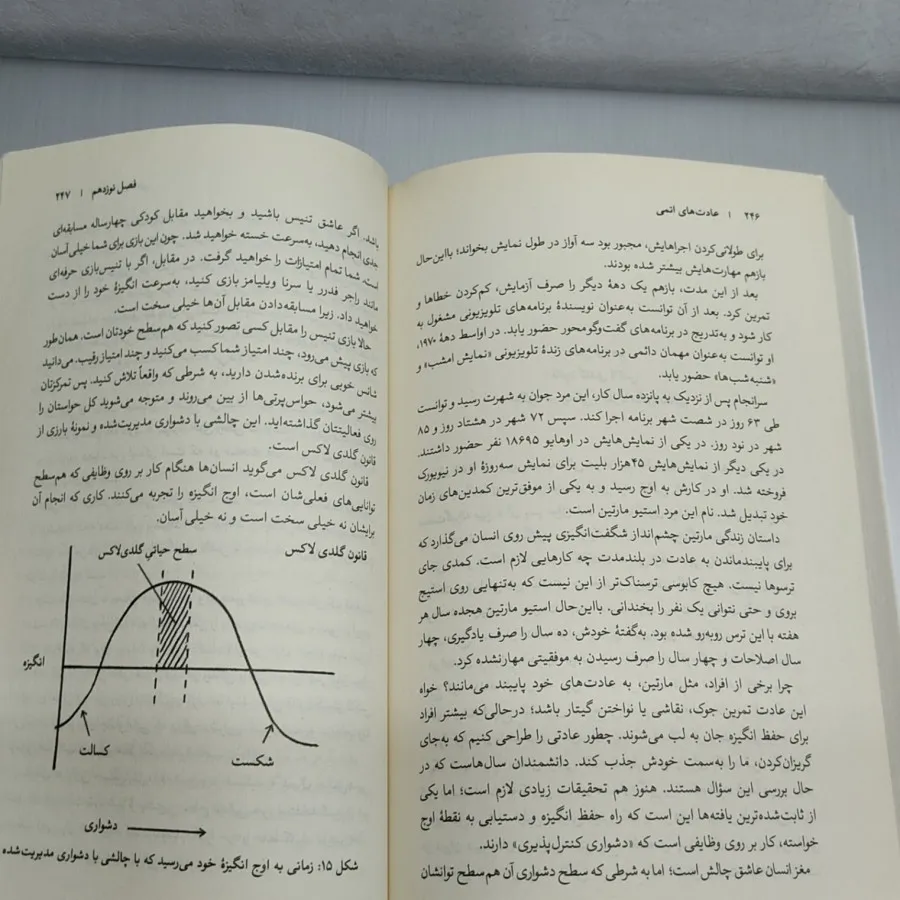 ۲۴۶ | عادت‌های اتمی
برای طولانی‌کردن اجراهایش، مجبور بود سه آواز در طول نمایش بخواند؛ بااین‌حال
بازهم مهارت‌هایش بیشتر شده بودند.
بعد از این مدت، بازهم یک دههٔ دیگر را صرف آزمایش، کم‌کردن خطاها و
تمرین کرد. بعد از آن توانست به‌عنوان نویسندهٔ برنامه‌های تلویزیونی مشغول به
کار شود و به‌تدریج در برنامه‌های گفت‌وگومحور حضور یابد. در اواسط دههٔ ۱۹۷۰،
او توانست به‌عنوان مهمان دائمی در برنامه‌های زندهٔ تلویزیونی «نمایش امشب» و
«شنبه‌شب‌ها» حضور یابد.
سرانجام پس از نزدیک به پانزده سال کار، این مرد جوان به شهرت رسید و توانست
طی ۶۳ روز در شصت شهر برنامه اجرا کند. سپس ۷۲ شهر در هشتاد روز و ۸۵
شهر در نود روز. در یکی از نمایش‌هایش در اوهایو ۱۸۶۹۵ نفر حضور داشتند.
در یکی دیگر از نمایش‌هایش ۴۵هزار بلیت برای نمایش سه‌روزهٔ او در نیویورک
فروخته شد. او در کارش به اوج رسید و به یکی از موفق‌ترین کمدین‌های زمان
خود تبدیل شد. نام این مرد استیو مارتین است.
داستان زندگی مارتین چشم‌انداز شگفت‌انگیزی پیش روی انسان می‌گذارد که
برای پایبندماندن به عادت در بلندمدت چه کارهایی لازم است. کمدی جای
ترسوها نیست. هیچ کابوسی ترسناک‌تر از این نیست که به‌تنهایی روی استیج
بروی و حتی نتوانی یک نفر را بخندانی. بااین‌حال استیو مارتین هجده سال هر
هفته با این ترس روبه‌رو شده بود. به‌گفتهٔ خودش، ده سال را صرف یادگیری، چهار
سال اصلاحات و چهار سال را صرف رسیدن به موفقیتی مهارنشده کرد.
چرا برخی از افراد، مثل مارتین، به عادت‌های خود پایبند می‌مانند؟ خواه
این عادت تمرین جوک، نقاشی یا نواختن گیتار باشد؛ درحالی‌که بیشتر افراد
برای حفظ انگیزه جان به لب می‌شوند. چطور عادتی را طراحی کنیم که به‌جای
گریزان‌کردن، ما را به‌سمت خودش جذب کند. دانشمندان سال‌هاست که در
حال بررسی این سؤال هستند. هنوز هم تحقیقات زیادی لازم است؛ اما یکی
از ثابت‌شده‌ترین یافته‌ها این است که راه حفظ انگیزه و دستیابی به نقطهٔ اوج
خواسته، کار بر روی وظایفی است که «دشواری کنترل‌پذیری» دارند.
مغز انسان عاشق چالش است؛ اما به شرطی که سطح دشواری آن هم‌سطح توانشان
فصل نوزدهم | ۲۴۷
باشد. اگر عاشق تنیس باشید و بخواهید مقابل کودکی چهارساله مسابقه‌ای
جدی انجام دهید، به‌سرعت خسته خواهید شد. چون این بازی برای شما خیلی آسان
است. شما تمام امتیازات را خواهید گرفت. در مقابل، اگر با تنیس‌بازی حرفه‌ای
مانند راجر فدرر یا سرنا ویلیامز بازی کنید، به‌سرعت انگیزهٔ خود را از دست
خواهید داد. زیرا مسابقه‌دادن مقابل آن‌ها خیلی سخت است.
حالا بازی تنیس را مقابل کسی تصور کنید که هم‌سطح خودتان است. همان‌طور
که بازی پیش می‌رود، چند امتیاز شما کسب می‌کنید و چند امتیاز رقیب. می‌دانید
شانس خوبی برای برنده‌شدن دارید، به شرطی که واقعاً تلاش کنید. پس تمرکزتان
بیشتر می‌شود، حواس‌پرتی‌ها از بین می‌روند و متوجه می‌شوید کل حواستان را
روی فعالیتتان گذاشته‌اید. این چالشی با دشواری مدیریت‌شده و نمونهٔ بارزی از
قانون گلدی لاکس است.
قانون گلدی لاکس می‌گوید انسان‌ها هنگام کار بر روی وظایفی که هم‌سطح
توانایی‌های فعلی‌شان است، اوج انگیزه را تجربه می‌کنند. کاری که انجام آن
برایشان نه خیلی سخت است و نه خیلی آسان.
قانون گلدی لاکس
سطح حیاتیِ گلدی‌لاکس
انگیزه
کسالت
شکست
دشواری
شکل ۱۵: زمانی به اوج انگیزهٔ خود می‌رسید که با چالشی با دشواری مدیریت‌شده